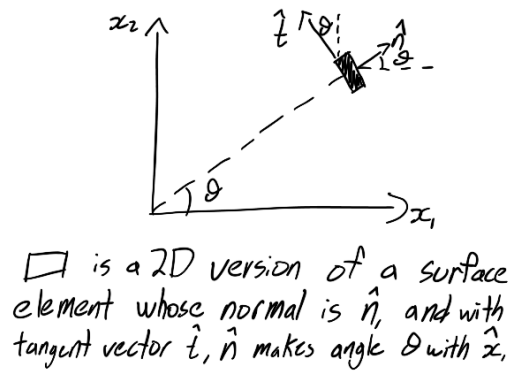 x₂
t̂ θ n̂
θ
θ
x₁
▱ is a 2D version of a surface
element whose normal is n̂, and with
tangent vector t̂, n̂ makes angle θ with x̂₁